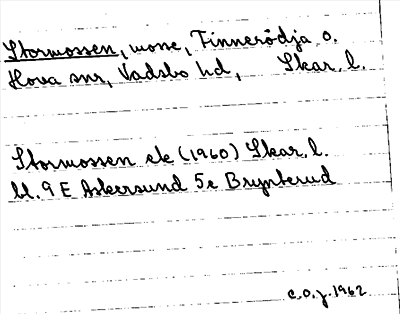 Stormossen, mosse, Finnerödja o.
Hova snr, Vadsbo hd, Skar. l.
Stormossen ek (1960) Skar. l.
bl. 9 E Askersund 5e Brynterud
C.O.J. 1962